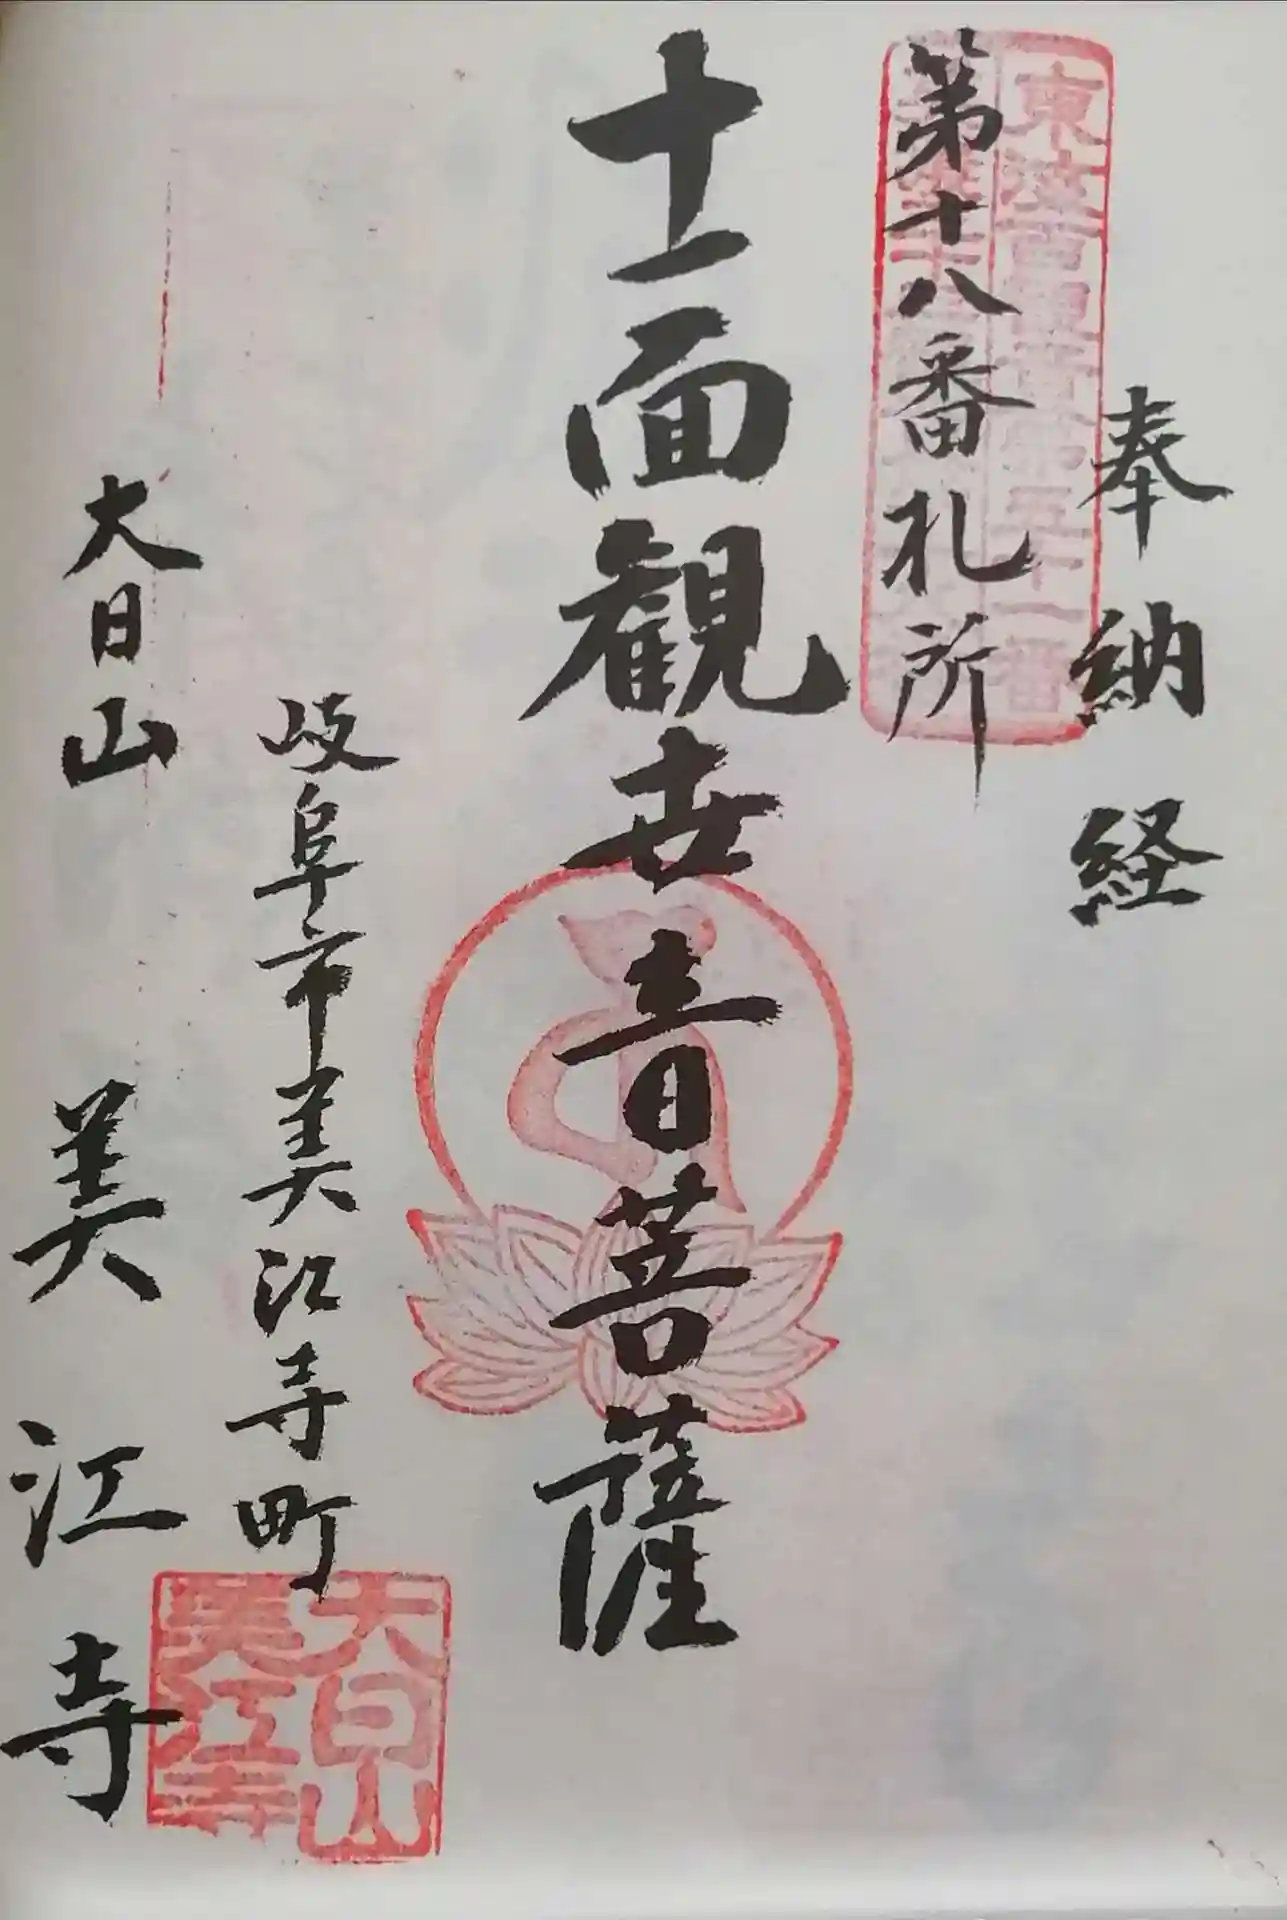 奉納経
東海百観音第五十一番
第十八番札所
十一面観世音菩薩
岐阜市美江寺町
大日山 美江寺
大日山
美江寺